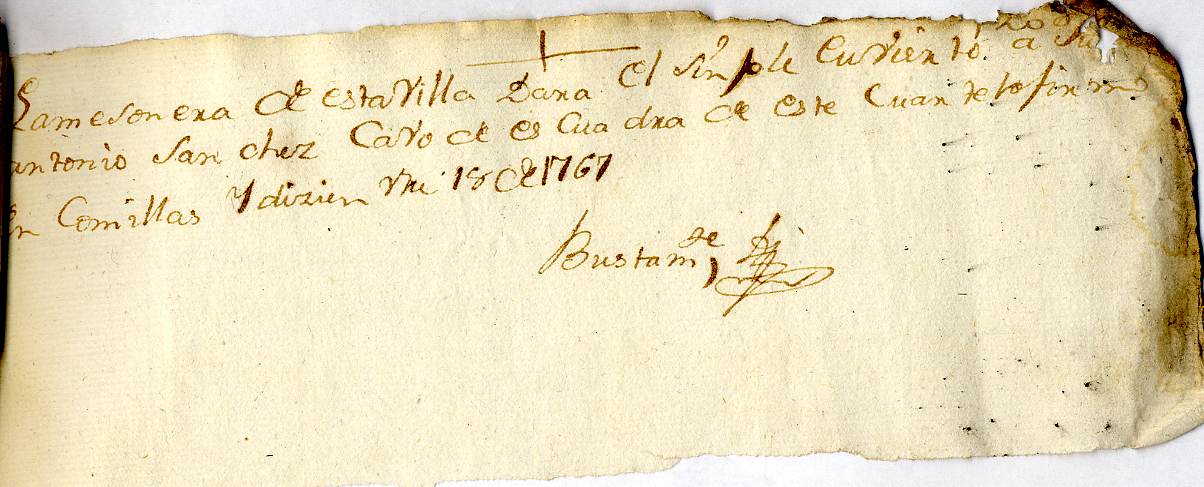 Lamesonera de esta Villa Dara el sinple Cuviento a
antonio Sanchez Cavo de esCuadra de este Cuartel lo firmo
En Comillas Y dizienvre 18 de 1767
Bustamte